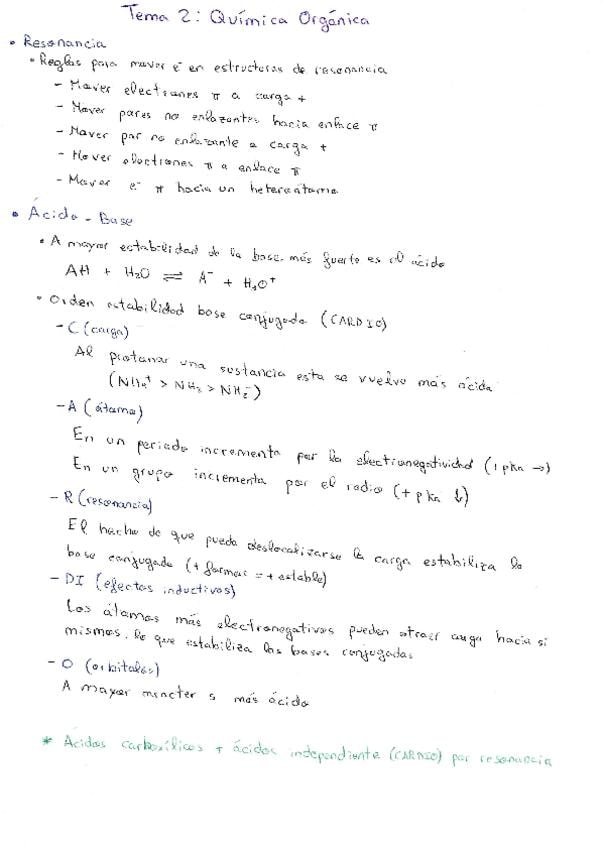 Tema 2: Química Orgánica
• Resonancia
• Reglas para mover e⁻ en estructuras de resonancia
- Mover electrones π a carga +
- Mover pares no enlazantes hacia enlace π
- Mover par no enlazante a carga +
- Mover electrones π a enlace π
- Mover e⁻ π hacia un heteroátomo
• Ácido - Base
• A mayor estabilidad de la base más fuerte es el ácido
AH + H₂O ⇌ A⁻ + H₃O⁺
• Orden estabilidad base conjugada (CARDIO)
- C (carga)
Al protonar una sustancia esta se vuelve más ácida
(NH₄⁺ > NH₃ > NH₂⁻)
- A (átomo)
En un periodo incrementa por la electronegatividad (+ pka →)
En un grupo incrementa por el radio (+ pka ↓)
- R (resonancia)
El hecho de que pueda deslocalizarse la carga estabiliza la
base conjugada (+ formas = + estable)
- DI (efectos inductivos)
Los átomos más electronegativos pueden atraer carga hacia si
mismos, lo que estabiliza las bases conjugadas
- O (orbitales)
A mayor caracter s más ácido
* Ácidos carboxílicos + ácidos independiente (CARDIO) por resonancia